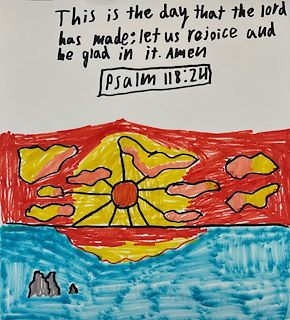 This is the day that the lord
has made: let us rejoice and
be glad in it. Amen
Psalm 118:24